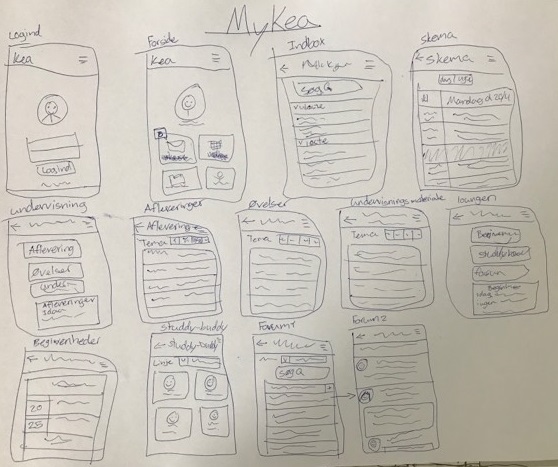 MyKea
Logind
Kea
Logind
Forside
Kea
Indbox
Søg
Skema
← Skema
Dag / Uge
Mandag d 20/4
Undervisning
Aflevering
Øvelser
Under-
Afleveringer
idag
Afleveringer
← Aflevering
Tema
Øvelser
Tema
Undervisningsmateriale
Tema
loungen
Studdybuddy
forum
Begivenheder
20
25
Studdy-buddy
← Studdy-buddy
Linje
Forum 1
Søg
Forum 2